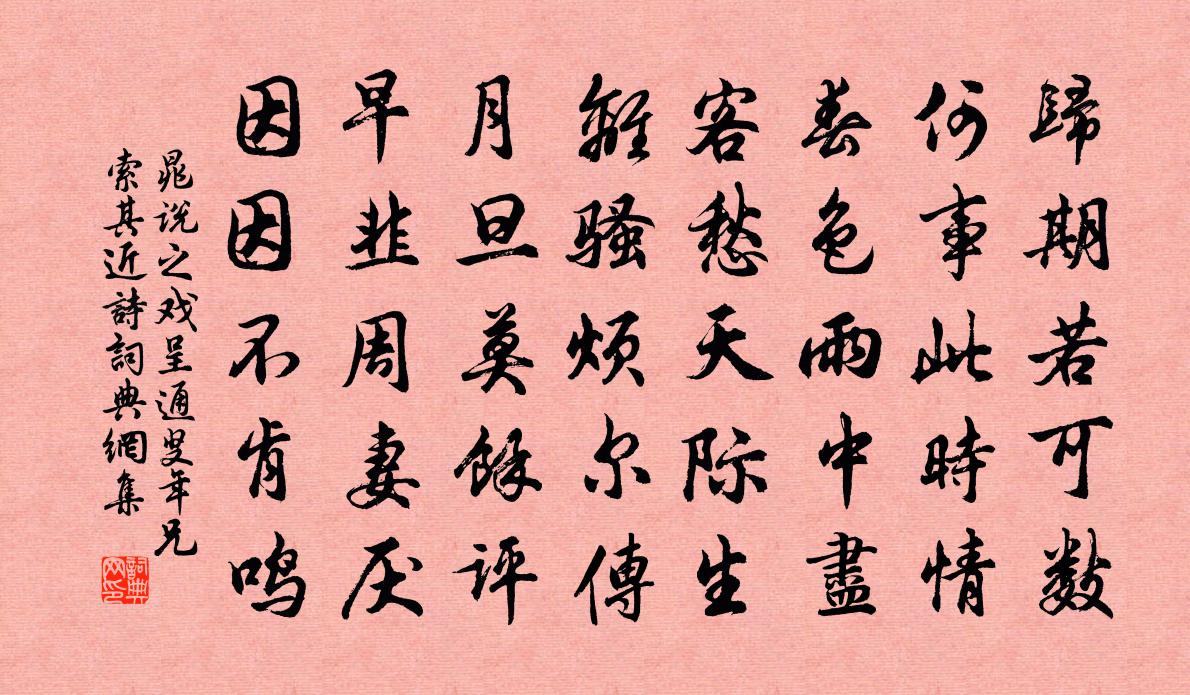 歸期若可数
何事此時情
春色雨中盡
客愁天际生
離骚烦尔傳
月旦莫餘评
早韭周妻厌
因因不肯鸣
晁说之戏呈通叟年兄
索其近詩詞典網集
詞典
网印